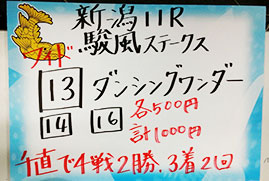 新潟11R
駿風ステークス
ワイド
13 ダンシングワンダー
14 16 各500円
計1000円
千直で4戦2勝.3着2回